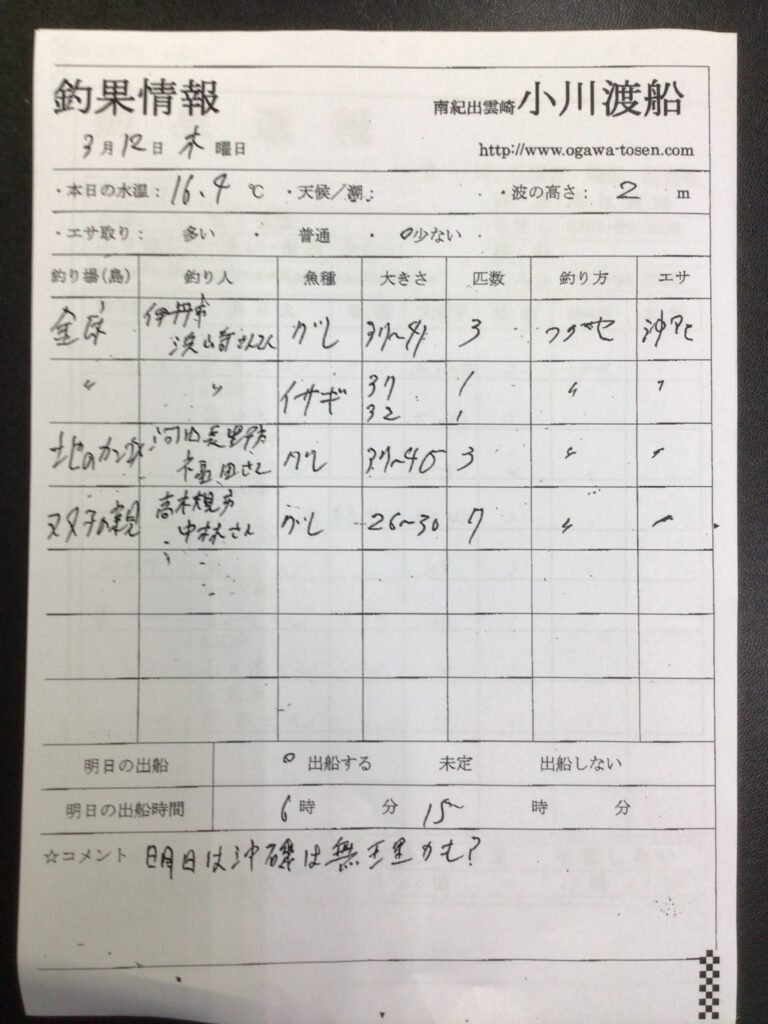 釣果情報
南紀出雲崎 小川渡船
3月12日 木 曜日
http://www.ogawa-tosen.com
・本日の水温: 16.4 ℃ ・天候/潮: ・波の高さ: 2 m
・エサ取り: 多い ・ 普通 ・ 少ない ・
釣り場(島) 釣り人 魚種 大きさ 匹数 釣り方 エサ
伊丹市
グレ 31~41 3 フカセ 沖アミ
〃 〃 イサギ 37 1 〃 〃
32 1
河内長野市
福田さん グレ 31~40 3 〃 〃
中林さん グレ 26~30 7 〃 〃
明日の出船 出船する 未定 出船しない
明日の出船時間 6時 分 15~ 時 分
☆コメント 明日は沖磯は無理かも?